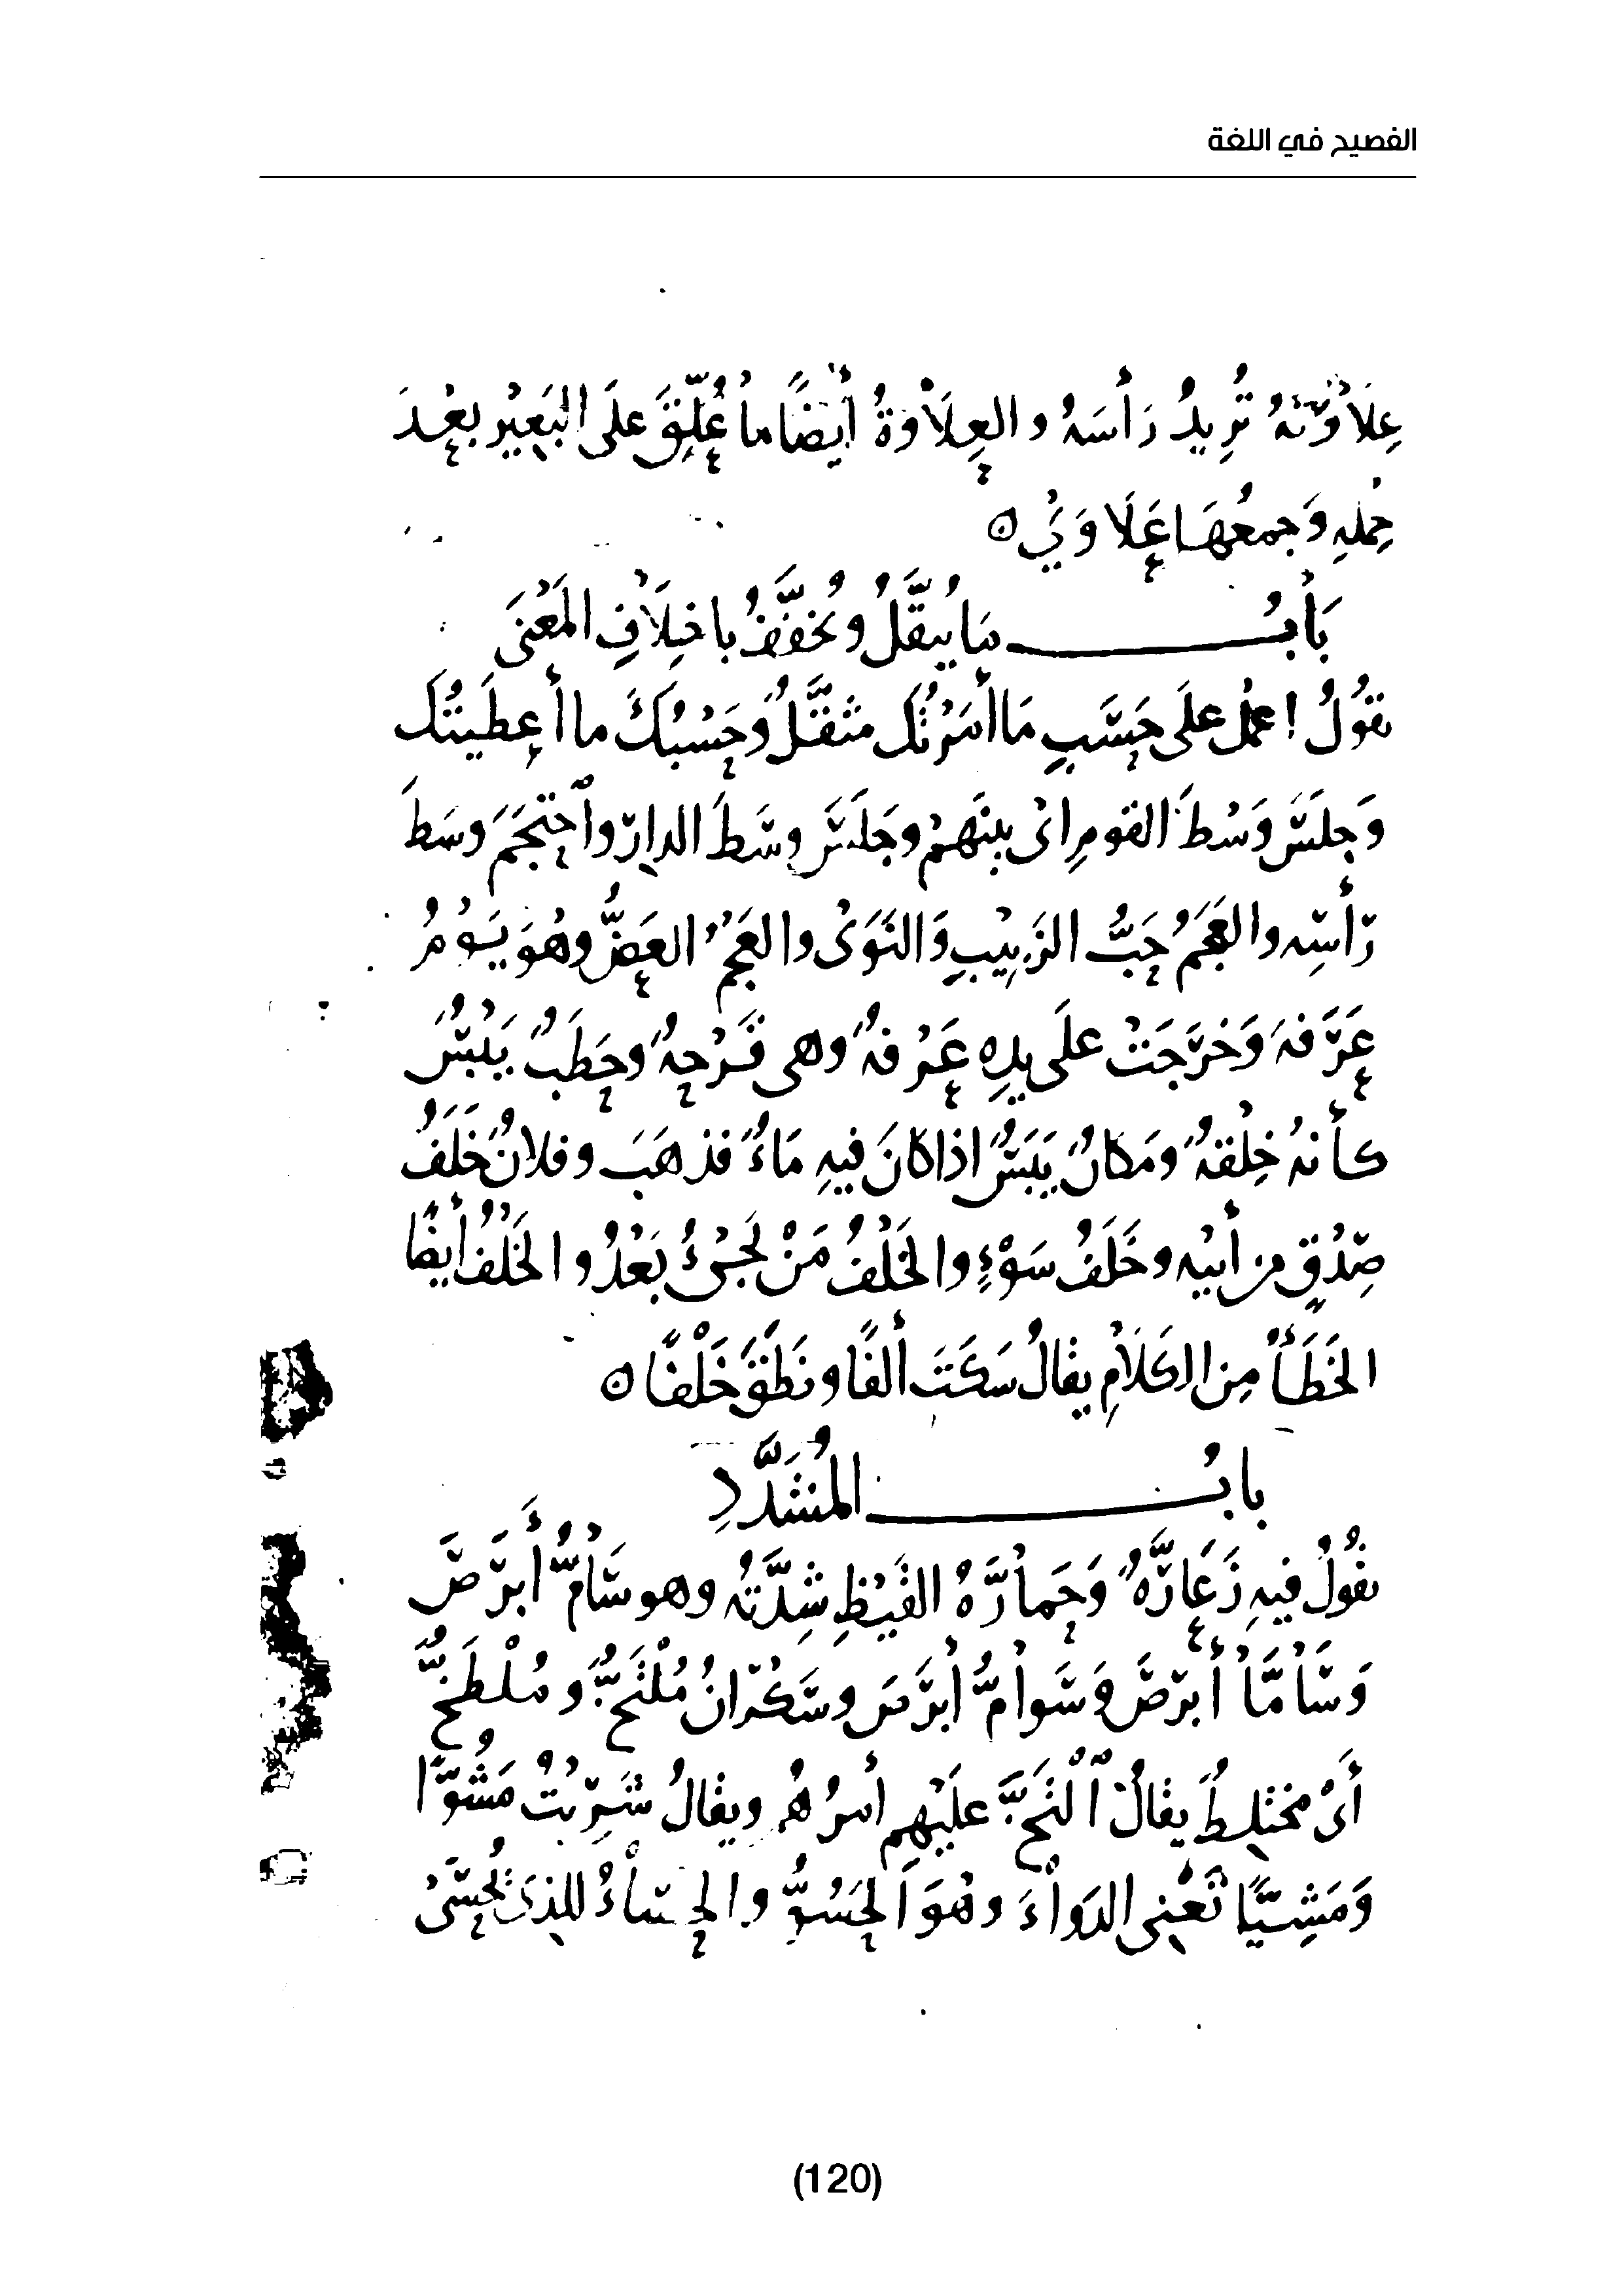 الفصيح في اللغة
عِلَاوَتَهُ تُرِيدُ رَأْسَهُ والعِلَاوَةُ أَيْضًا ما عُلِّقَ علَى البَعِيْرِ بعْدَ
حِمْلِهِ وَجمعُهَا عَلَاوَىٰ ٥
بَابُ مَا يُثقَّلُ ويُخفَّفُ باختِلَافِ المَعْنَى
تقُولُ اعمل على حَسَبِ مَا أَمَرْتُكَ مثقَّلٌ وَحَسْبُكَ ما أَعطَيتُكَ
وَجلَسَ وَسْطَ القومِ اىْ بينَهمْ وجَلَسَ وسَطَ الدارِ واحتجَمَ وسَطَ
رَأْسِهِ والعَجَمُ حَبُّ الزَبِيْبِ وَالنَوَىْ والعَجْمُ العَضُّ وهُوَ يَوْمُ
عَرَفَةَ وَخرَجَتْ علَى يدِهِ عَرْفةٌ وهى قَرْحةٌ وحَطَبٌ يَبْسٌ
كأَنهُ خِلْقةٌ ومَكانٌ يَبَسٌ اذا كانَ فيهِ مَاءٌ فذهَبَ وفلانٌ خَلَفُ
صِدْقٍ من أبيْهِ وخَلَفُ سَوْءٍ والخَلْفُ مَنْ يَجِىْءُ بَعْدُ والخَلْفُ أيضًا
الخَطَأُ مِن الكَلَامِ يقالُ سَكَتَ أَلفًا ونَطَقَ خَلْفًا ٥
بابُ المُشَدَّدِ
تقُولُ فيهِ زَعَارَّةٌ وَحَمارَّةُ القَيْظِ شِدَّتُهُ وهو سَامُّ أَبْرَصَ
وَسَامَّا أَبرَصَ وَسَوامُّ أَبْرَصَ وسَكْرَانُ مُلْتَخٌّ ومُلْطَخٌّ
أَىْ مختلِطٌ يقالُ الْتَخَّ علَيْهِم أَمرُهُم ويقالُ شَرِبْتُ مَشُوًّا
وَمَشِيًّا تَعْنِى الدَوَاءَ وهُوَ الحَسُوُّ والحَسَاءُ للذى يُحْسَىْ
(120)